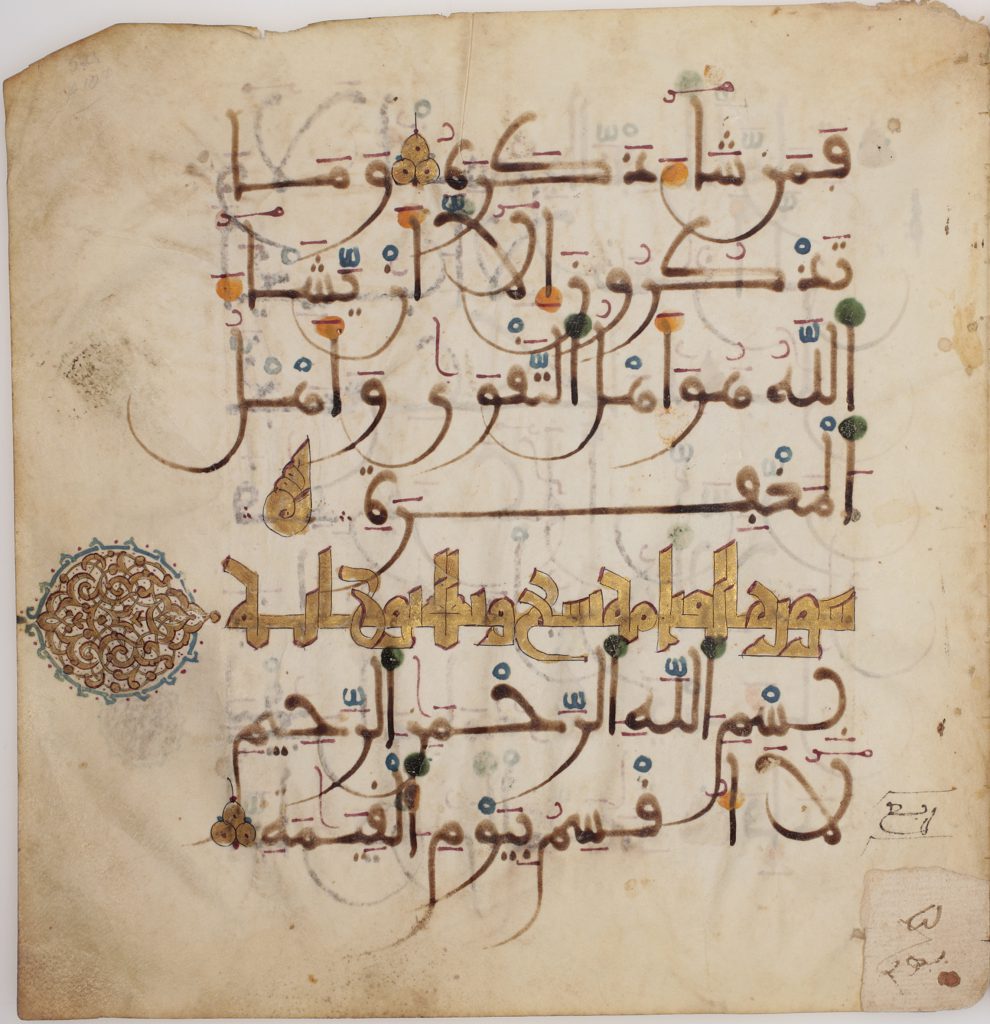 فمن شاء ذكره وما
تذكرون إلا أن يشاء
الله هو أهل التقوى وأهل
المغفرة
سورة القيامة تسع وثلثون اية
بسم الله الرحمن الرحيم
لا أقسم بيوم القيمة